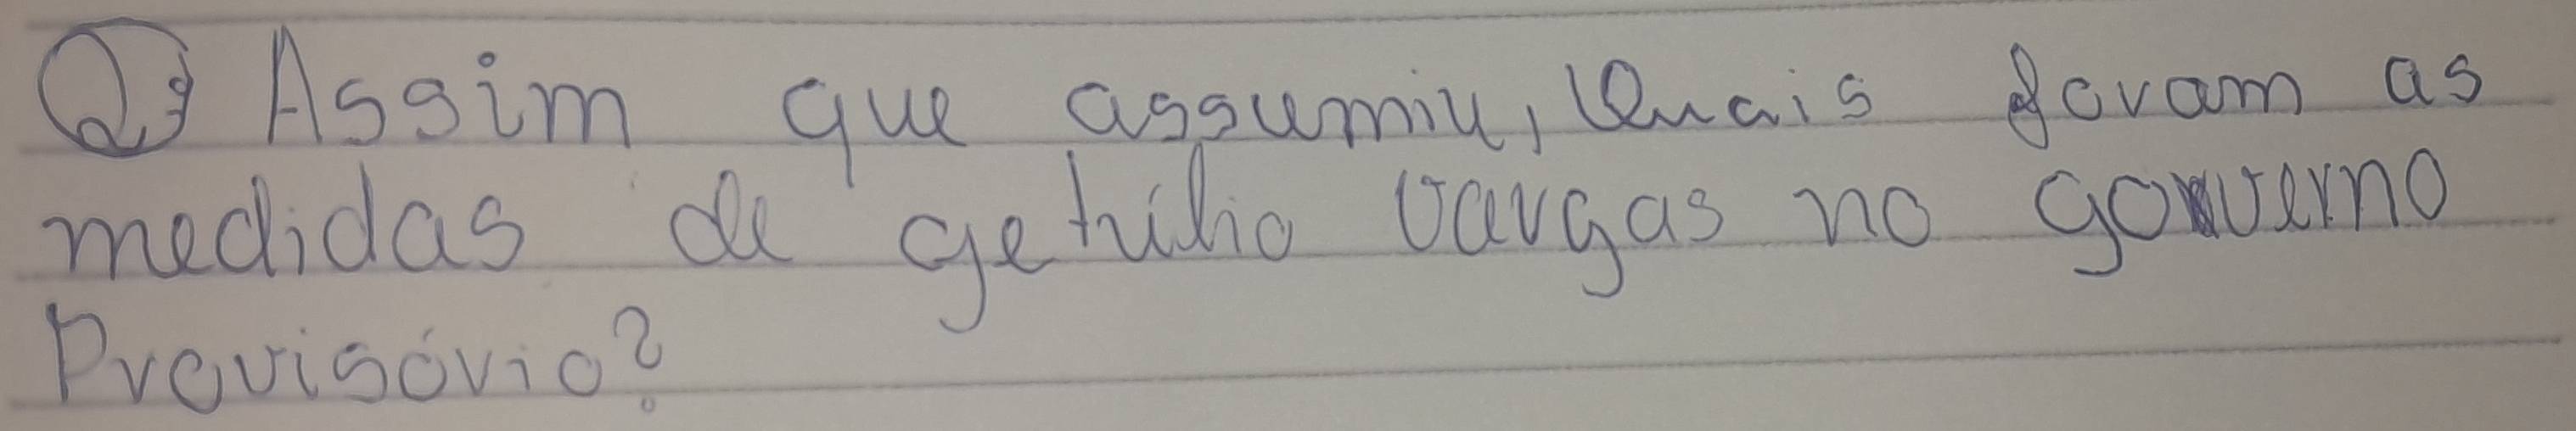 2) Assim que assumiu, Quais foram as
medidas de getúlio vargas no governo
Provisório?